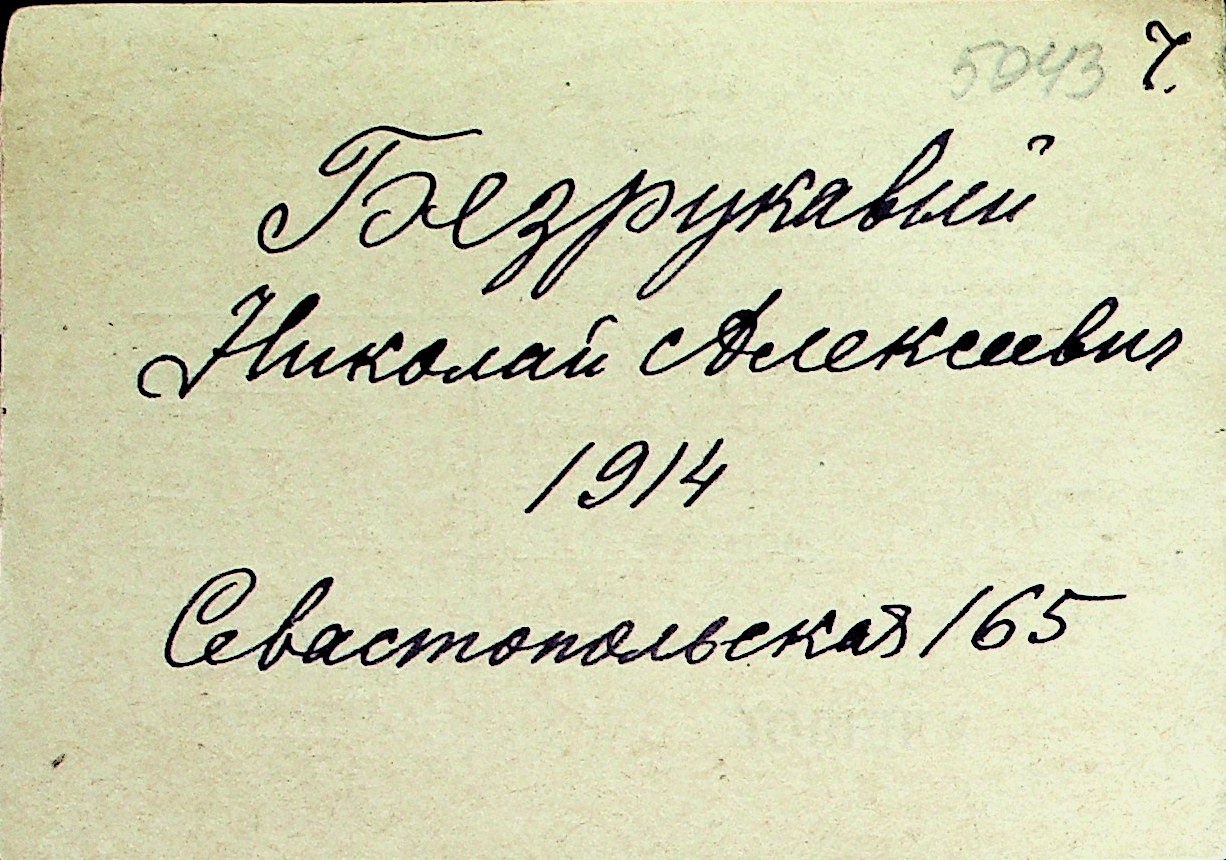 5043 7.
Безрукавый
Николай Алексеевич
1914
Севастопольская 165